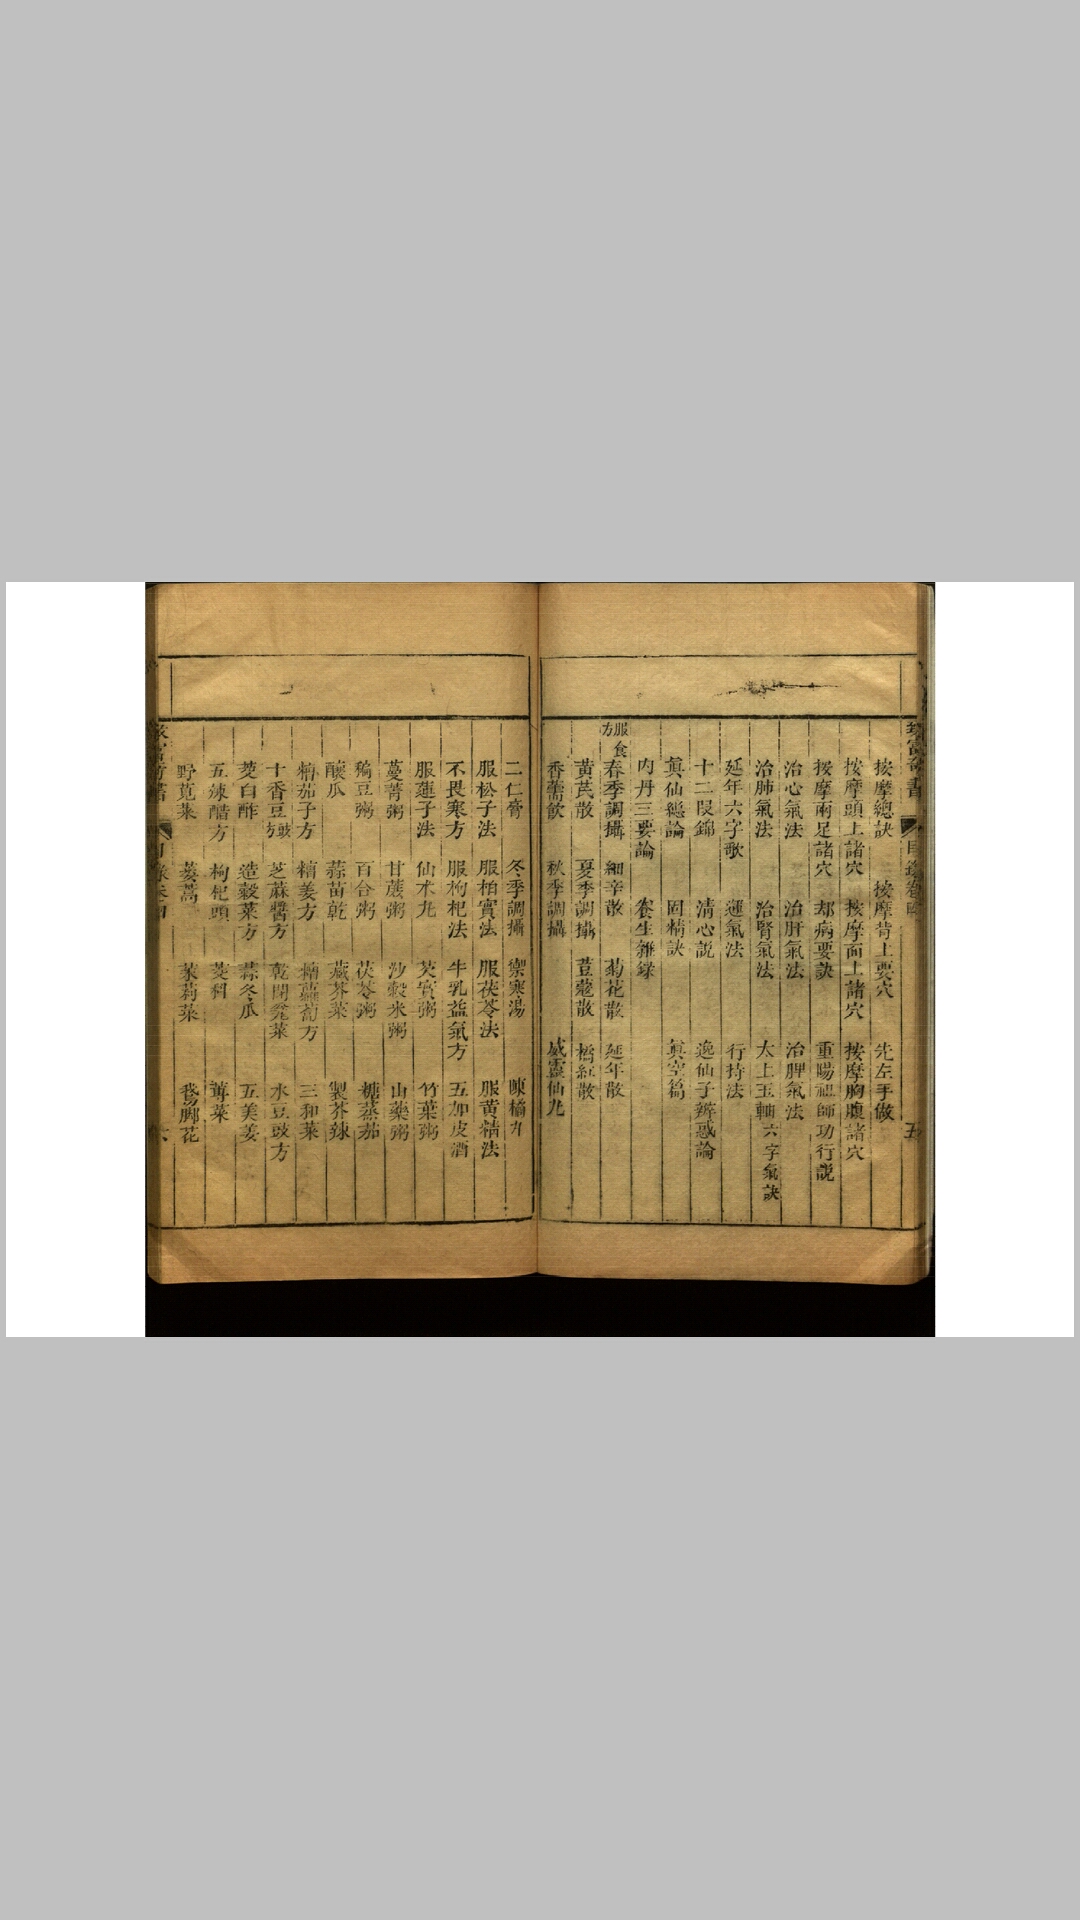 按摩總訣 按摩背上要穴 先左手做
按摩頭上諸穴 按摩面上諸穴 按摩胸腹諸穴
按摩兩足諸穴 却病要訣 重陽祖師功行説
治心氣法 治肝氣法 治脾氣法
治肺氣法 治腎氣法 太上玉軸六字氣訣
延年六字歌 運氣法 行持法
十二叚錦 清心説 逸仙子辨惑論
眞仙總論 固精訣 眞空篇
内丹三要論 養生雜録
服食方
春季調攝 細辛散 菊花散 延年散
黄芪散 夏季調攝 荳蔻散 橘紅散
香薷飲 秋季調攝 威靈仙丸
二仁膏 冬季調攝 禦寒湯 陳橘丸
服松子法 服柏實法 服茯苓法 服黄精法
不畏寒方 服枸杞法 牛乳益氣方 五加皮酒
服蓮子法 仙朮丸 芡實粥 竹葉粥
蔓菁粥 甘蔗粥 沙穀米粥 山藥粥
豆粥 百合粥 茯苓粥 糖蒸茄
釀瓜 蒜苗乾 藏芥菜 製芥辣
糟茄子方 糟姜方 糟蘿蔔方 三和菜
十香豆豉方 芝蔴醬方 乾閉瓮菜 水豆豉方
茭白酢 造穀菜方 蒜冬瓜 五美姜
五辣醋方 枸杞頭 菱科 蓴菜
野莧菜 蔞蒿 茉莉菜 鵞脚花
目錄卷四
五
六